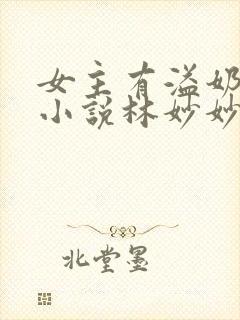 女主有溢奶
小说林妙妙
北堂墨